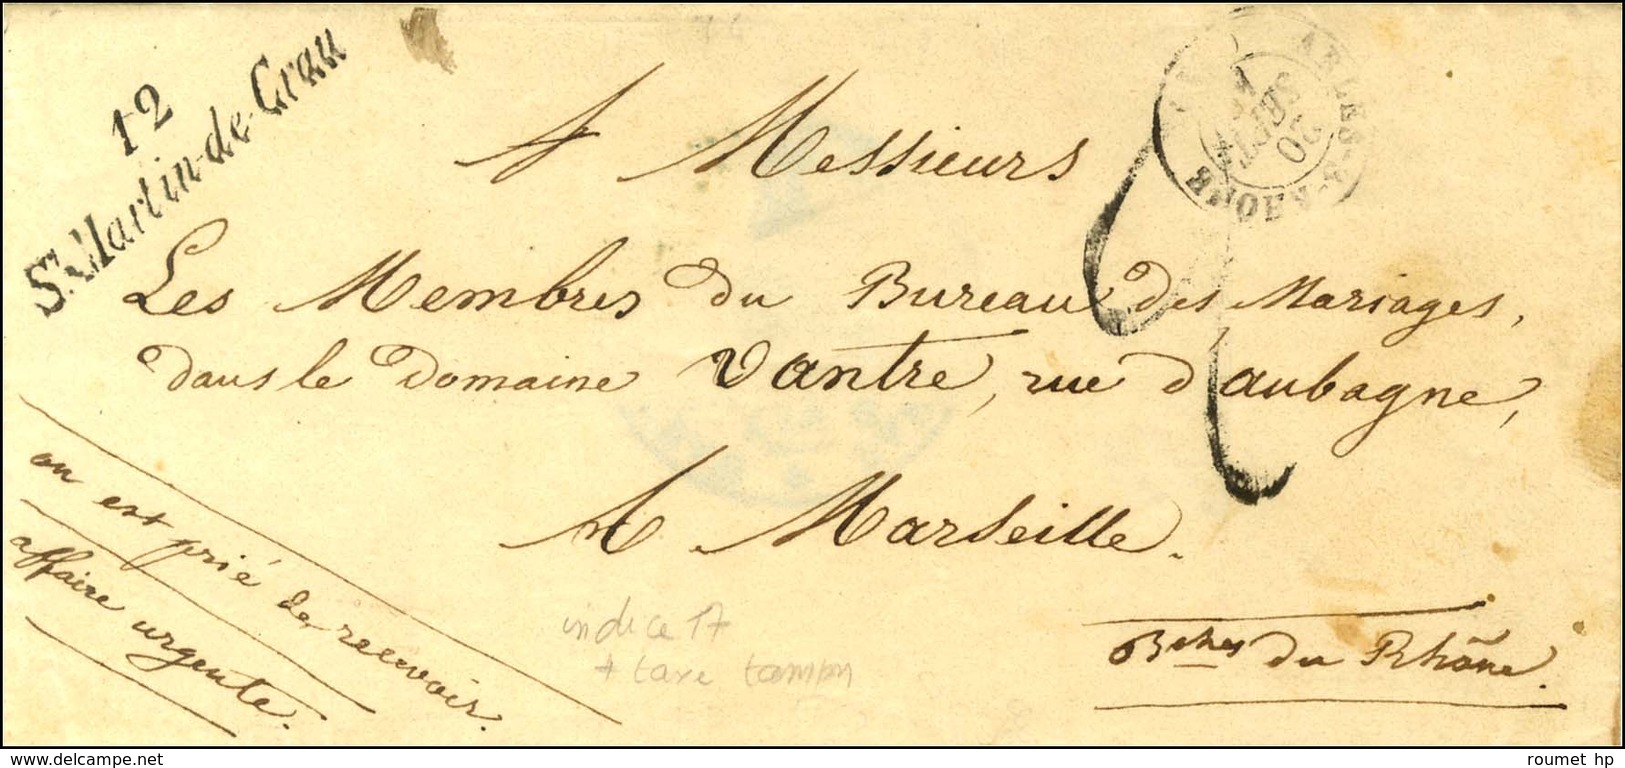 12
St Martin-de-Crau
ARLES-S-RHONE
20
SEPT.
A Messieurs
Les Membres du Bureau des Mariages,
dans le Domaine Vantre, rue d'aubagne,
A Marseille.
Bches du Rhône.
on est prié de recevoir.
affaire urgente.
indice 17
+ taxe tampon
roumet hp